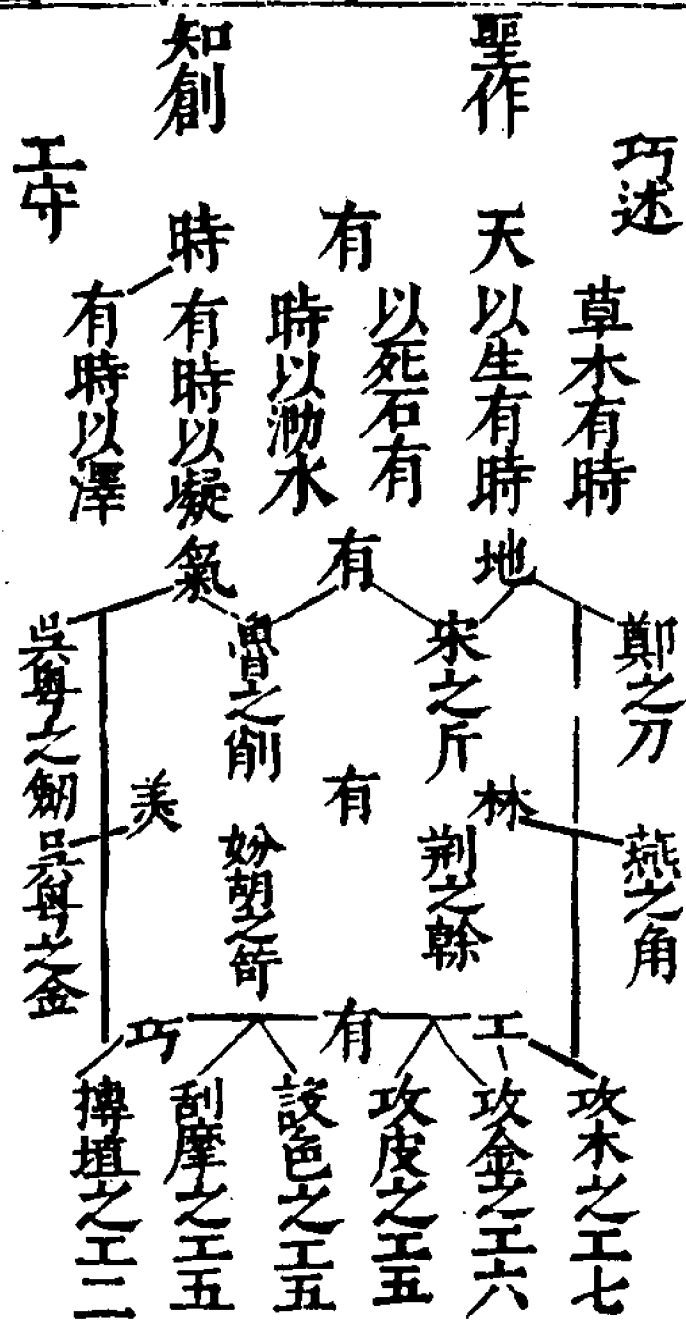 巧述
聖作
知創
工守
天有時
草木有時
以生有時
以死石有
時以泐水
有時以凝
有時以澤
地有氣
鄭之刀
宋之斤
魯之削
吳粵之劒
林有美
燕之角
荆之幹
妢胡之笴
吳粵之金
工有巧
攻木之工七
攻金之工六
攻皮之工五
設色之工五
刮摩之工五
摶埴之工二